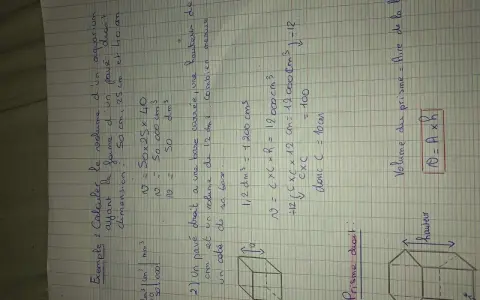 Exemple : Calculer le volume d'un aquarium
ayant la forme d'un pavé droit
dimension : 50 cm, 25 cm et 40 cm
V = 50 x 25 x 40
V = 50 000 cm³
V = 50 dm³
2) Un pavé droit a une base carrée, une hauteur de
cm et un volume de 1,2 combien mesure
un coté de sa base
1,2 dm³ = 1 200 cm³
V = c x c x h = 12 000 cm³
c x c x 12 cm = 12 000 cm³
÷12
c x c = 100
donc c = 10 cm
Prisme droit :
hauteur
Volume du prisme = Aire de la
V = A x h